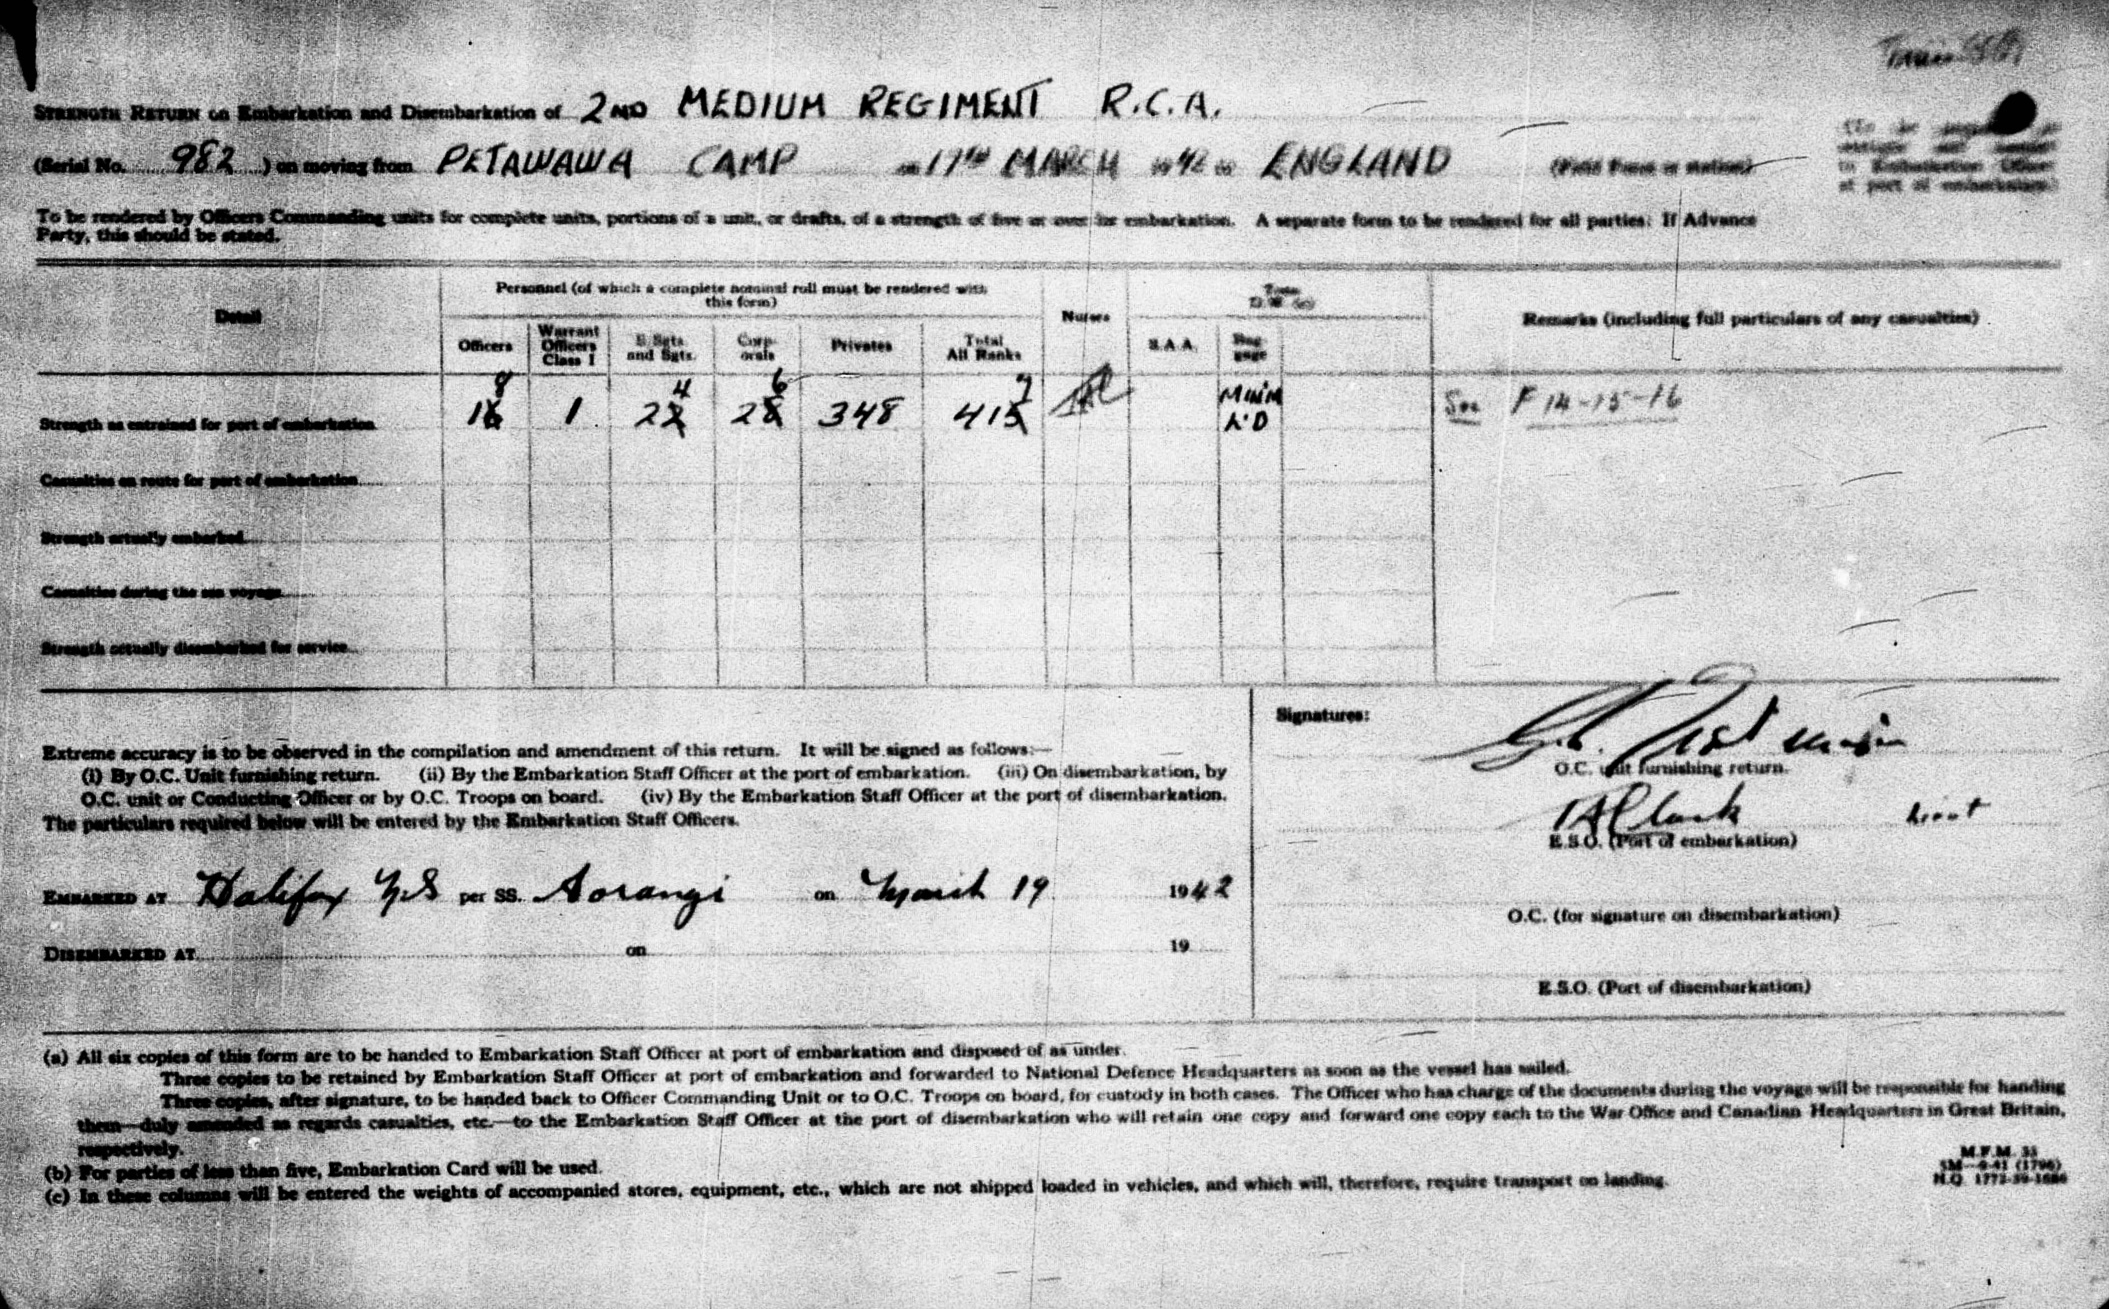 STRENGTH RETURN on Embarkation and Disembarkation of 2ND MEDIUM REGIMENT R.C.A.
(Serial No. 982 ) on moving from PETAWAWA CAMP on 17TH MARCH 1942 to ENGLAND (Field Force or station)
to Embarkation Officer
at port of embarkation)
To be rendered by Officers Commanding units for complete units, portions of a unit, or drafts, of a strength of five or over for embarkation. A separate form to be rendered for all parties. If Advance
Party, this should be stated.
Detail
Personnel (of which a complete nominal roll must be rendered with
this form)
Nurses
Tons
Remarks (including full particulars of any casualties)
Officers
Warrant
Officers
Class I
S.Sgts.
and Sgts.
Corp-
orals
Privates
Total
All Ranks
S.A.A.
Bag-
gage
8 4 6 7
Strength as entrained for port of embarkation 16 1 22 28 348 415
See F 14-15-16
Casualties en route for port of embarkation
Strength actually embarked
Casualties during the sea voyage
Strength actually disembarked for service
Signatures:
Extreme accuracy is to be observed in the compilation and amendment of this return. It will be signed as follows:—
(i) By O.C. Unit furnishing return. (ii) By the Embarkation Staff Officer at the port of embarkation. (iii) On disembarkation, by
O.C. unit or Conducting Officer or by O.C. Troops on board. (iv) By the Embarkation Staff Officer at the port of disembarkation.
The particulars required below will be entered by the Embarkation Staff Officers.
Major
O.C. unit furnishing return.
Clark Lieut
E.S.O. (Port of embarkation)
EMBARKED AT Halifax N.S per SS. Aorangi on March 19 1942
O.C. (for signature on disembarkation)
DISEMBARKED AT on 19
E.S.O. (Port of disembarkation)
(a) All six copies of this form are to be handed to Embarkation Staff Officer at port of embarkation and disposed of as under.
Three copies to be retained by Embarkation Staff Officer at port of embarkation and forwarded to National Defence Headquarters as soon as the vessel has sailed.
Three copies, after signature, to be handed back to Officer Commanding Unit or to O.C. Troops on board, for custody in both cases. The Officer who has charge of the documents during the voyage will be responsible for handing
them—duly amended as regards casualties, etc.—to the Embarkation Staff Officer at the port of disembarkation who will retain one copy and forward one copy each to the War Office and Canadian Headquarters in Great Britain,
respectively.
(b) For parties of less than five, Embarkation Card will be used.
(c) In these columns will be entered the weights of accompanied stores, equipment, etc., which are not shipped loaded in vehicles, and which will, therefore, require transport on landing.
M.F.M. 33
H.Q. 1772-39-1686